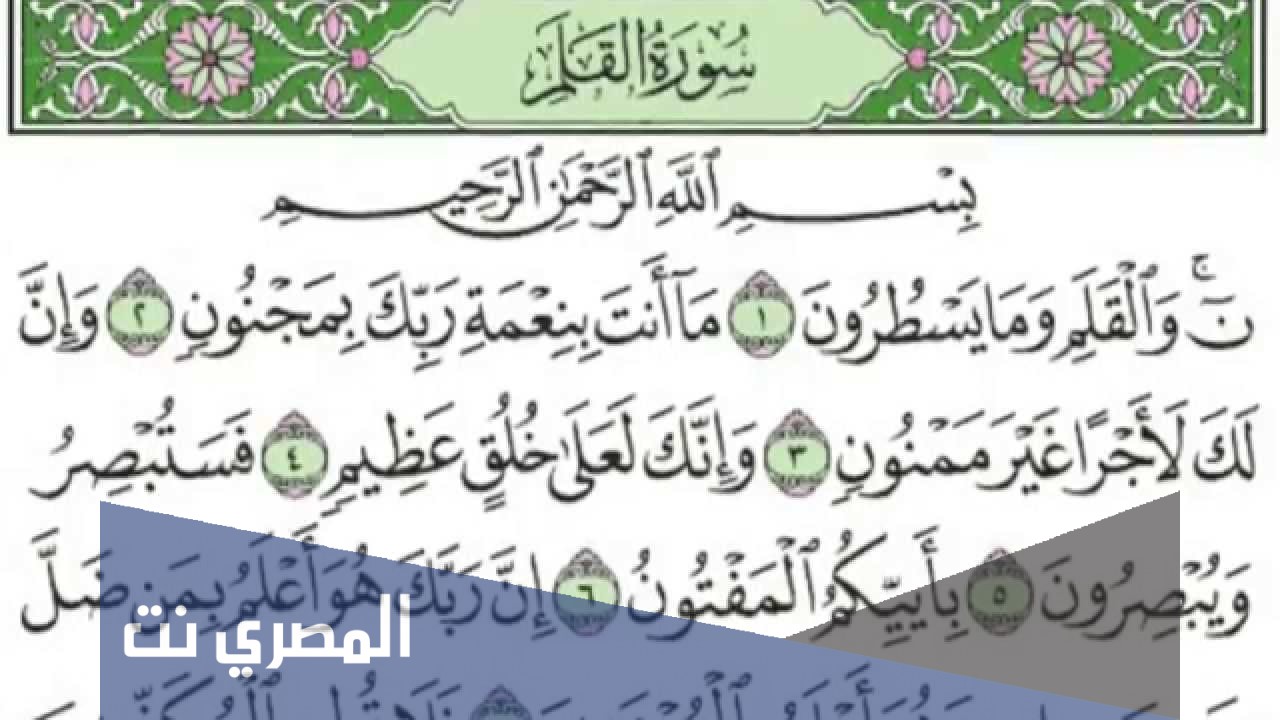 سُورَةُ القَلَمِ
بِسْمِ ٱللَّهِ ٱلرَّحْمَٰنِ ٱلرَّحِيمِ
نٓۚ وَٱلْقَلَمِ وَمَا يَسْطُرُونَ ١ مَآ أَنتَ بِنِعْمَةِ رَبِّكَ بِمَجْنُونٍ ٢ وَإِنَّ
لَكَ لَأَجْرًا غَيْرَ مَمْنُونٍ ٣ وَإِنَّكَ لَعَلَىٰ خُلُقٍ عَظِيمٍ ٤ فَسَتُبْصِرُ
وَيُبْصِرُونَ ٥ بِأَييِّكُمُ ٱلْمَفْتُونُ ٦ إِنَّ رَبَّكَ هُوَ أَعْلَمُ بِمَن ضَلَّ
المصري نت